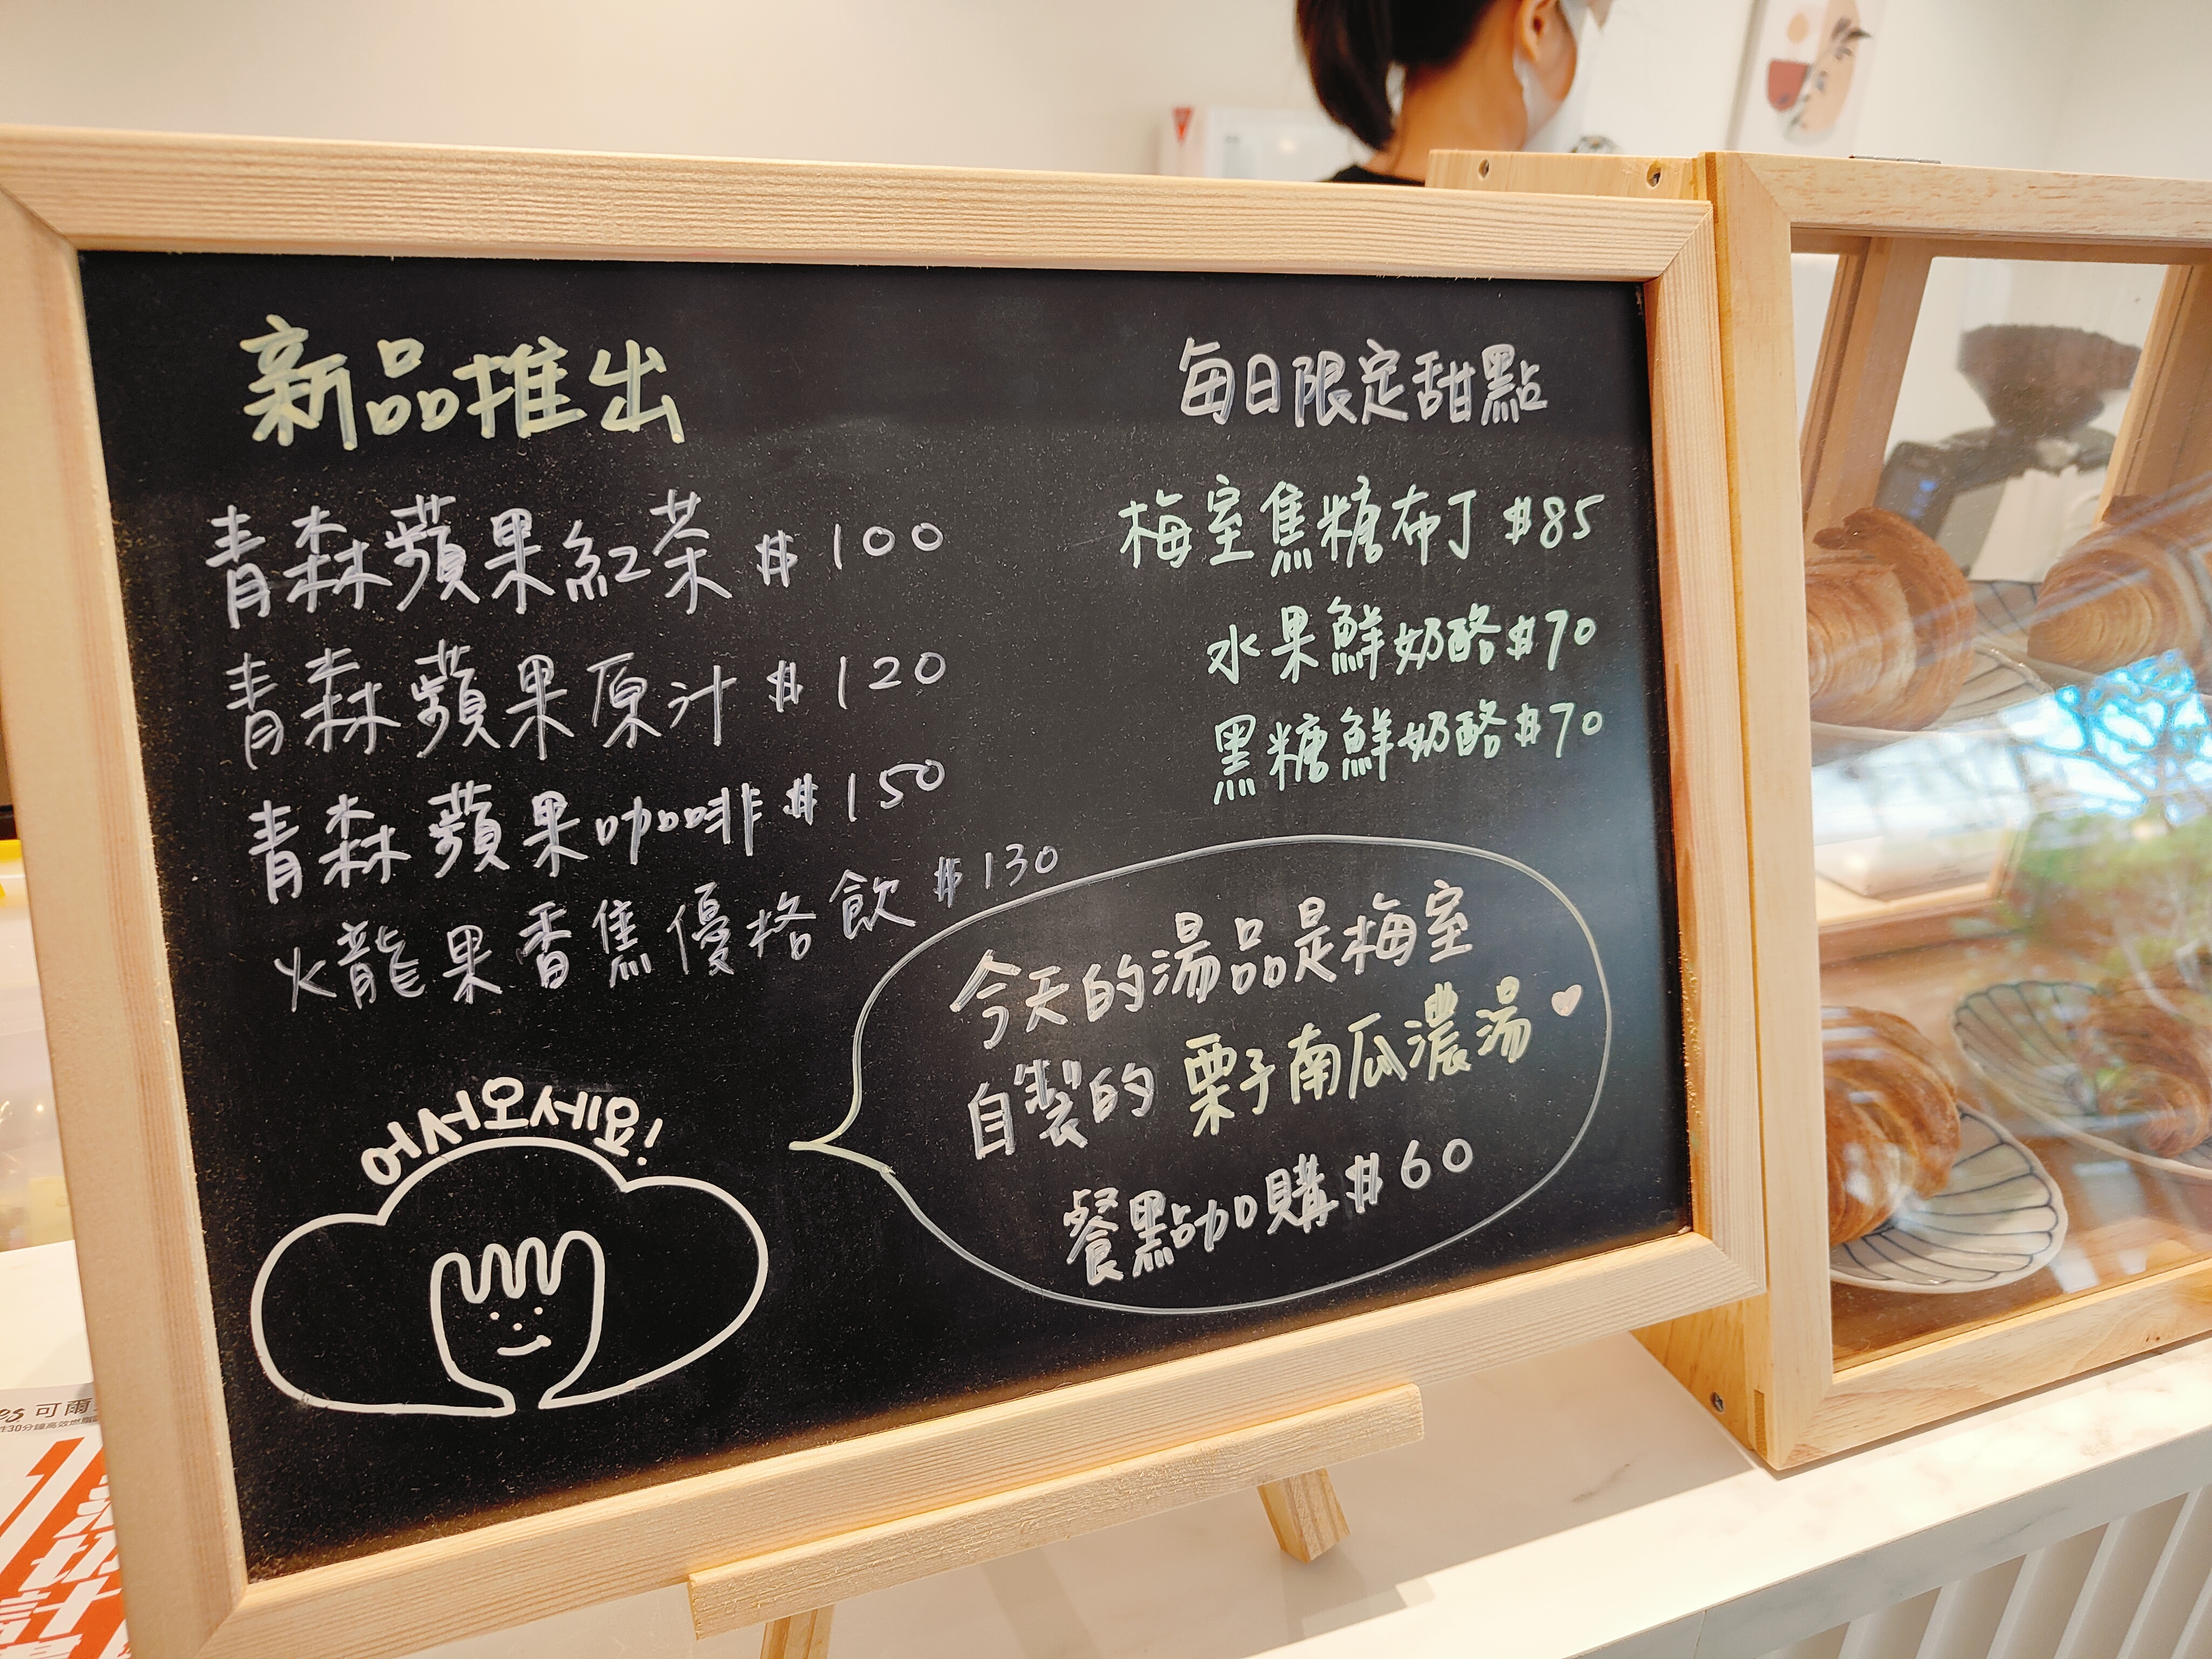 新品推出
青森蘋果紅茶 $100
青森蘋果原汁 $120
青森蘋果咖啡 $150
火龍果香焦優格飲 $130
每日限定甜點
梅室焦糖布丁 $85
水果鮮奶酪 $70
黑糖鮮奶酪 $70
今天的湯品是梅室
自製的栗子南瓜濃湯
餐點加購 $60
어서오세요!
可爾
30分鐘高效燃脂